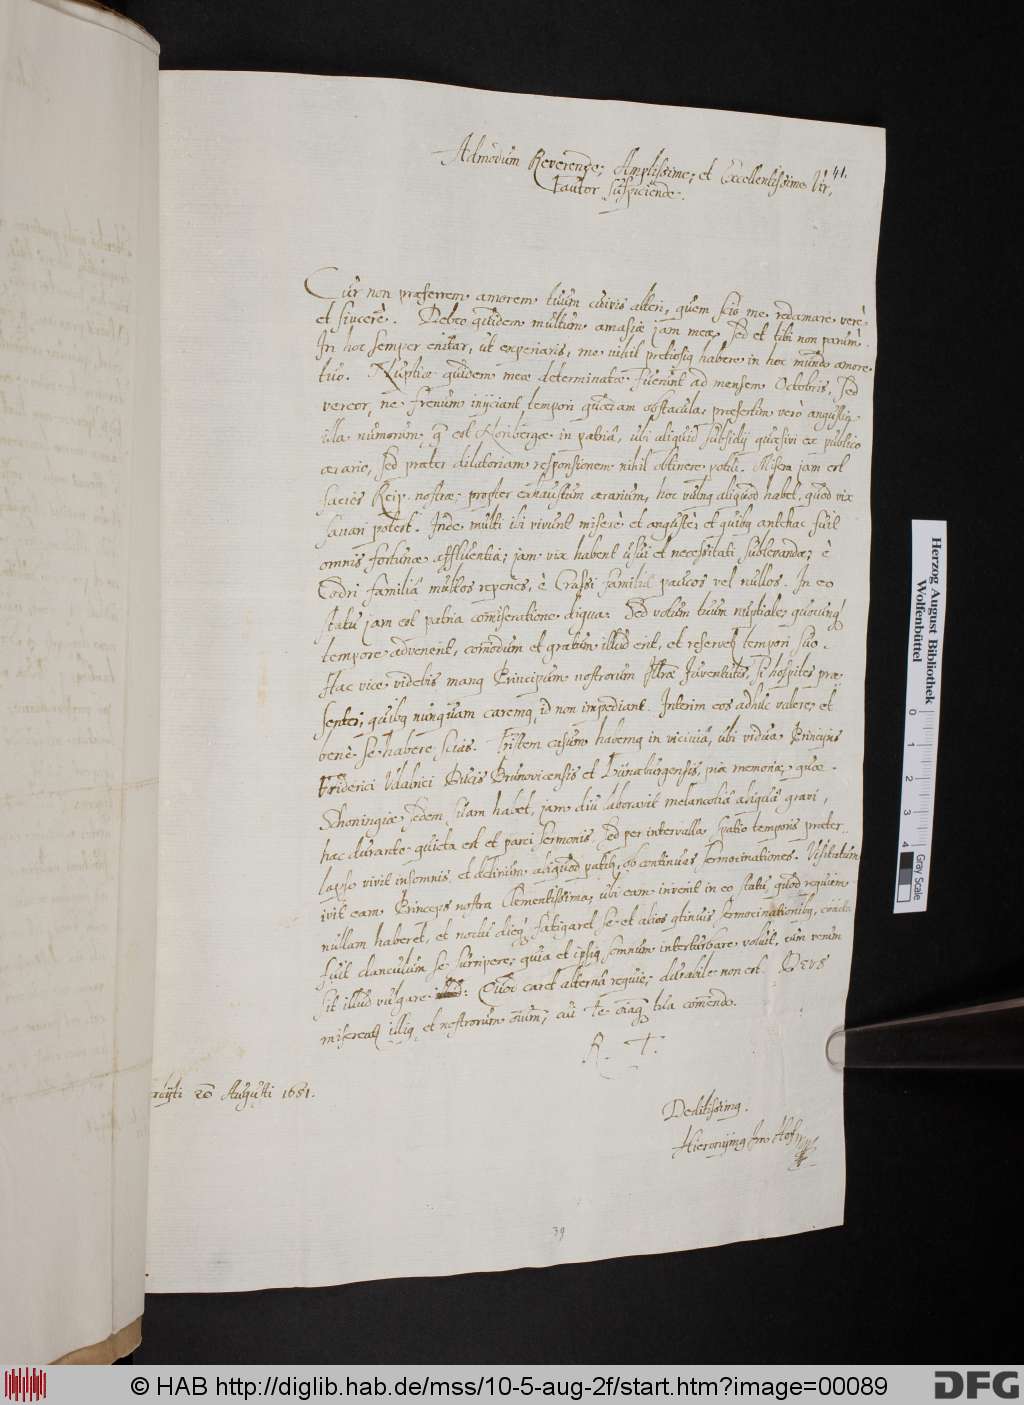 41.
Admodum Reverende, Amplissime, et Excellentissime Vir,
Fautor Suspiciende.
Cur non præferrem amorem tuum cuivis alteri, quem scio me redamare verè
et sincerè. Debeo quidem multum amasiæ jam meæ, sed et tibi non parum.
In hoc semper enitar, ut experiaris, me nihil pretiosiq habere in hoc mundo amore
tuo. Nuptiæ quidem meæ determinatæ fuerunt ad mensem Octobris, Sed
vereor, ne frenum injiciant tempori quædam obstacula, præsertim verò angustiæ
illa numorum, q est Noribergæ in patriâ, ubi aliquid subsidij quæsivi ex publico
ærario, sed præter dilatoriam responsionem nihil obtinere potui. Misera jam est
facies Reip. nostræ, propter exhaustum ærarium, hoc vulnq aliquod habet, quod vix
sanari potest. Inde multi ibi vivunt miserè et angustè, et quibq antehac fuit
omnis fortunæ affluentia, jam vix habent usui et necessitati sublevandæ; è
Codri familiâ multos reperies, è Crassi familiâ paucos vel nullos. In eo
statu jam est patria com̃iseratione digna. Sed votum tuum nuptiale, quocunq
tempore advenerit, com̃odum et gratum illud erit, et reservetq tempori suo.
Hac vice videbis manq Principum nostrorum Ill̃træ Juventutis, si hospites præ-
sentes, quibq nunquam caremq, id non impediant. Interim eos adhuc valere, et
benè se habere scias. Tristem casum habemq in viciniâ, ubi vidua Principis
Friderici Udalrici Ducis Brunovicensis et Lünæburgensis, piæ memoriæ, quæ
Schoningiæ sedem suam habet, jam diu laboravit melancoliâ aliquâ gravi,
hac durante quieta est et parci sermonis, sed per intervalla spatio temporis præter-
lapso vivit insomnis, et delirium aliquod patitq, ob continuas sermocinationes. Visitatum
ivit eam Princeps nostra Clementissima, ubi eam invenit in eo statu, quod requiem
nullam haberet, et noctu dieq fatigaret se et alios continuis sermocinationibq, coacta
fuit clanculum se surripere, quia et ipsiq somnum interturbare voluit, cum verum
sit illud vulgare: Quod caret alternâ requie, durabile non est. Deus
misereatq illiq, et nostrorum om̃ium, cui Te
R. T.
20 Augusti 1651.
Deditissimq.
Hieronijmq Im Hof
39
Herzog August Bibliothek
Wolfenbüttel
0 1 2 3 4
Gray Scale
© HAB http://diglib.hab.de/mss/10-5-aug-2f/start.htm?image=00089
DFG